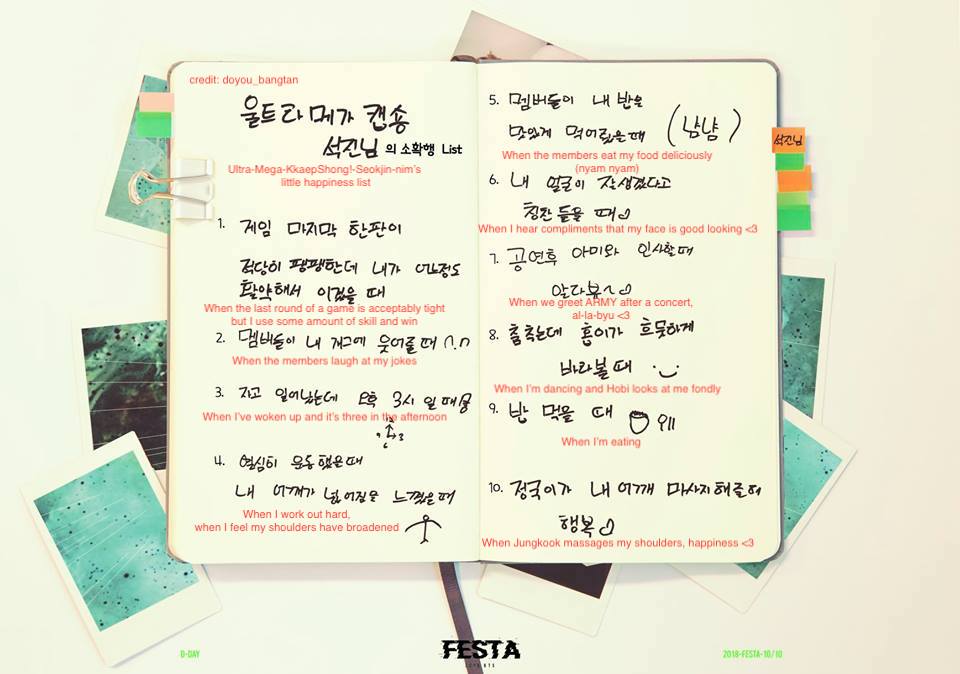 credit: doyou_bangtan
울트라 메가 캡숑
석진님 의 소확행 List
Ultra-Mega-KkaepShong!-Seokjin-nim's
little happiness list
1. 게임 마지막 한판이
적당히 팽팽한데 내가 어느정도
활약해서 이겼을 때
When the last round of a game is acceptably tight
but I use some amount of skill and win
2. 멤버들이 내 개그에 웃어줄 때 ∩.∩
When the members laugh at my jokes
3. 자고 일어났는데 오후 3시 일 때
When I've woken up and it's three in the afternoon
4. 열심히 운동했을때
내 어깨가 넓어짐을 느꼈을때
When I work out hard,
when I feel my shoulders have broadened
5. 멤버들이 내 밥을
맛있게 먹어줬을때 (냠냠)
When the members eat my food deliciously
(nyam nyam)
6. 내 얼굴이 잘생겼다고
칭찬 들을 때
When I hear compliments that my face is good looking <3
7. 공연후 아미와 인사할때
알라뷰~
When we greet ARMY after a concert,
al-la-byu <3
8. 춤추는데 홉이가 흐뭇하게
바라볼때
When I'm dancing and Hobi looks at me fondly
9. 밥 먹을 때
When I'm eating
10. 정국이가 내 어깨 마사지해줄때
행복
When Jungkook massages my shoulders, happiness <3
석진님
D-DAY
FESTA
2018-FESTA-10/10